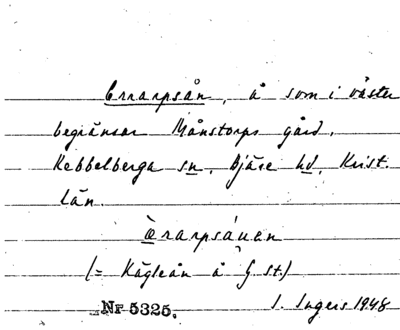 Errarpsån, å som i väster
begränsar Månstorps gård,
Kebbelberga sn, Bjäre hd, Krist.
län.
ærarpsáuen
(= Kägleån å G. st.)
Nr 5325. I. Ingers 1948